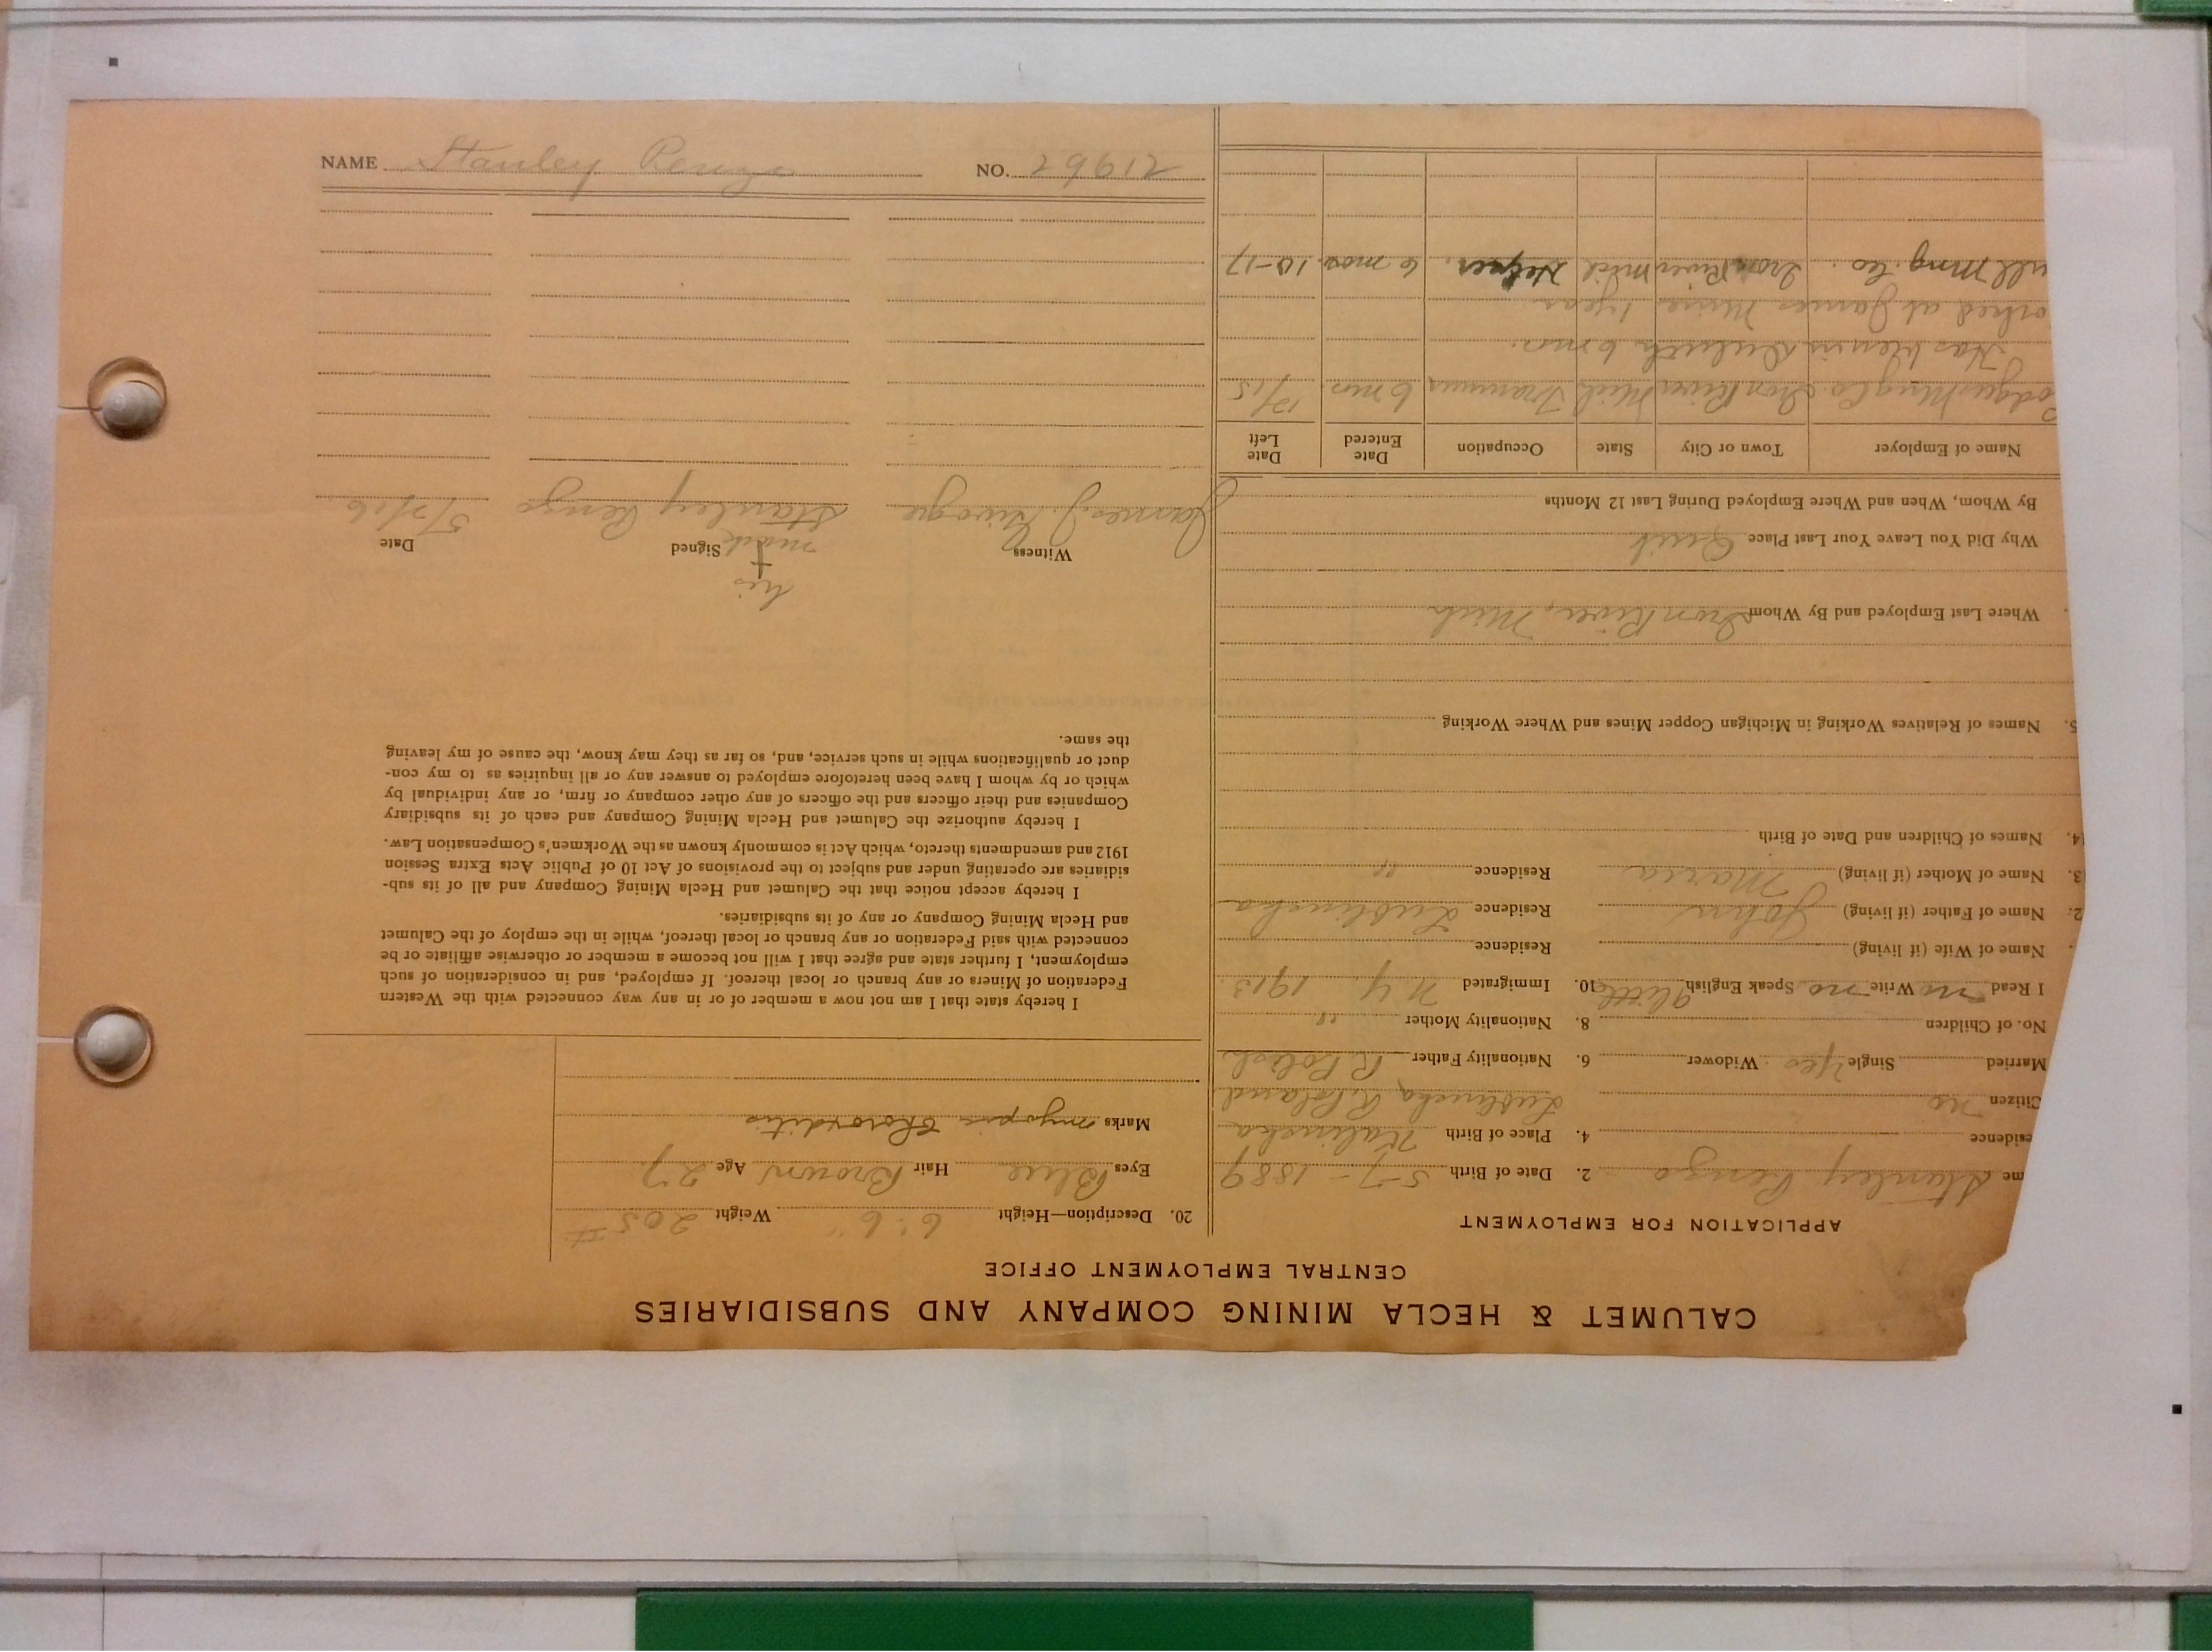 CALUMET & HECLA MINING COMPANY AND SUBSIDIARIES
CENTRAL EMPLOYMENT OFFICE
APPLICATION FOR EMPLOYMENT
me Stanley Renzo 2. Date of Birth 5-7-1889
esidence 4. Place of Birth Kalincka
Citizen no Lublincka R. Poland
Married Single Yes Widower 6. Nationality Father R. Polish
No. of Children 8. Nationality Mother "
I Read no Write no Speak English little 10. Immigrated N.Y. 1913
Name of Wife (if living) Residence
2. Name of Father (if living) John Residence Lublincka
3. Name of Mother (if living) Maria Residence "
4. Names of Children and Date of Birth
5. Names of Relatives Working in Michigan Copper Mines and Where Working
Where Last Employed and By Whom Iron River, Mich
Why Did You Leave Your Last Place Quit
By Whom, When and Where Employed During Last 12 Months
Name of Employer Town or City State Occupation Date Entered Date Left
Mng Co. Iron River Mich Trammer 6 mos 12/15
Has been in Duluth 6 mos.
orked at James Mine 1 year
Mng. Co. Iron River Mich 6 mos. 10-17
20. Description—Height 6' 6" Weight 205 #
Eyes Blue Hair Brown Age 27
Marks myopia
I hereby state that I am not now a member of or in any way connected with the Western
Federation of Miners or any branch or local thereof. If employed, and in consideration of such
employment, I further state and agree that I will not become a member or otherwise affiliate or be
connected with said Federation or any branch or local thereof, while in the employ of the Calumet
and Hecla Mining Company or any of its subsidiaries.
I hereby accept notice that the Calumet and Hecla Mining Company and all of its sub-
sidiaries are operating under and subject to the provisions of Act 10 of Public Acts Extra Session
1912 and amendments thereto, which Act is commonly known as the Workmen's Compensation Law.
I hereby authorize the Calumet and Hecla Mining Company and each of its subsidiary
Companies and their officers and the officers of any other company or firm, or any individual by
which or by whom I have been heretofore employed to answer any or all inquiries as to my con-
duct or qualifications while in such service, and, so far as they may know, the cause of my leaving
the same.
his
Witness mark Signed Date
James J. Stanley Renzo 5/2/16
NAME Stanley Renzo NO. 29612